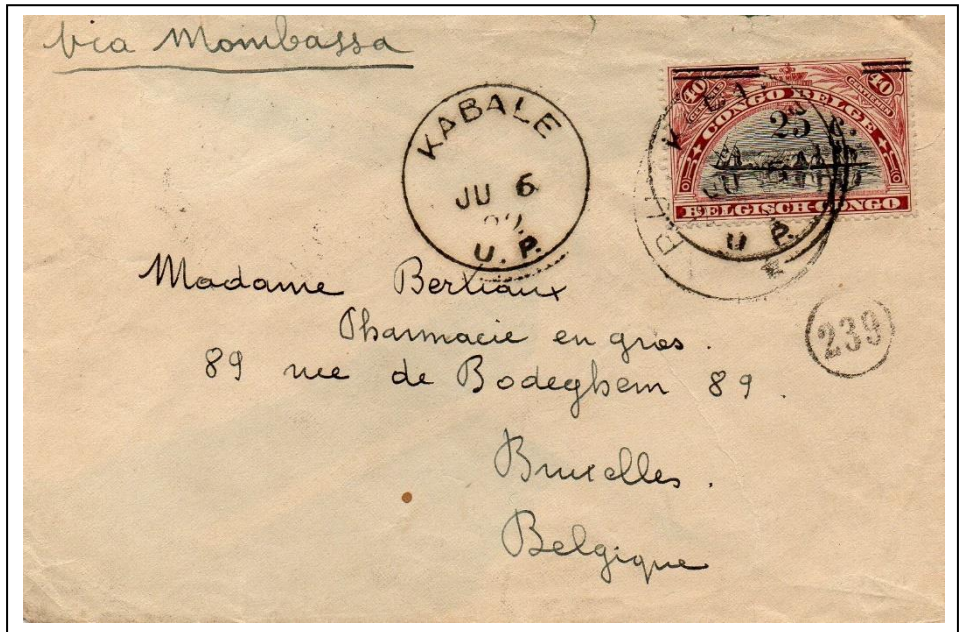 via Mombassa
KABALE
JU 6
U. P.
40 40
CONGO BELGE
25 c.
BELGISCH-CONGO
U P.
Madame Bertiaux
Pharmacie en gros.
239
89 rue de Bodeghem 89.
Bruxelles.
Belgique